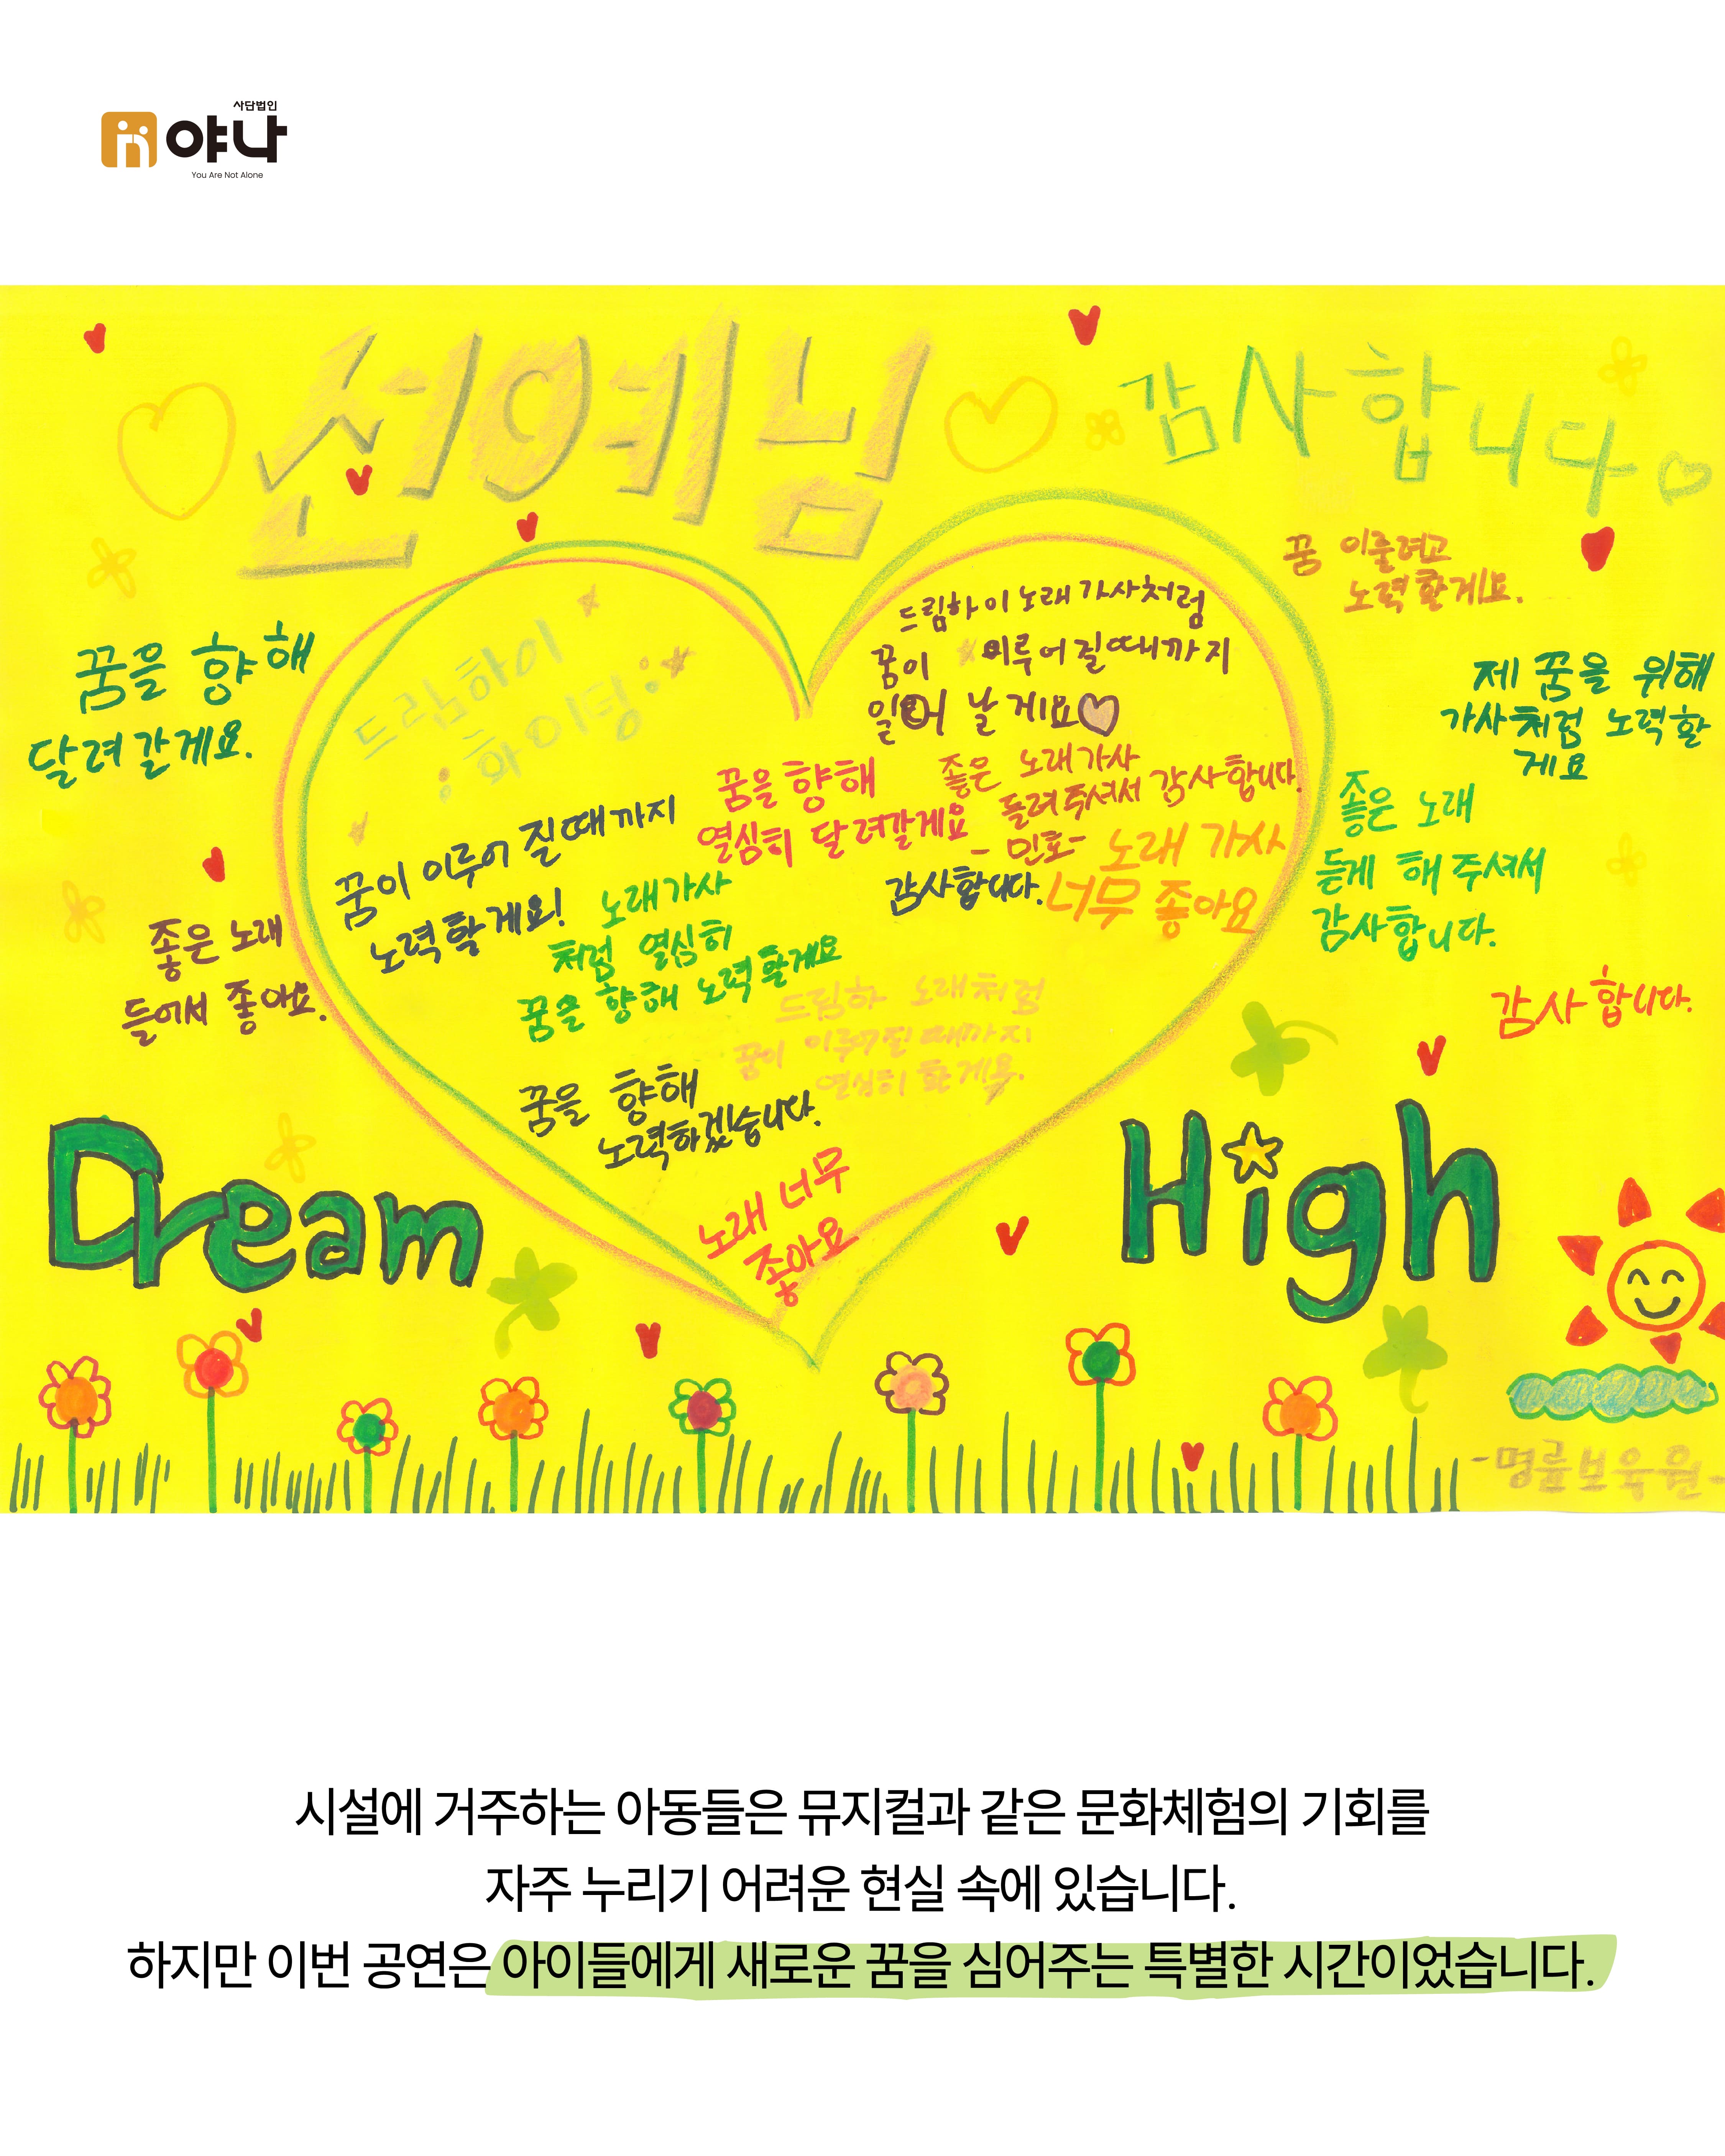 사단법인
야나
You Are Not Alone
선예님
감사합니다
꿈 이룰려고
노력할게요.
꿈을 향해
달려갈게요.
드림하이
화이팅
드림하이 노래 가사처럼
꿈이 이루어질때까지
일어 날게요
제 꿈을 위해
가사처럼 노력할
게요
꿈을 향해
열심히 달려갈게요
좋은 노래가사
들려주셔서 감사합니다.
- 민호-
노래 가사
너무 좋아요
감사합니다.
꿈이 이루어 질때까지
노력할게요!
노래가사
처럼 열심히
꿈을 향해 노력할게요
좋은 노래
듣게 해 주셔서
감사합니다.
좋은 노래
들어서 좋아요.
드림하 노래처럼
꿈이 이루어질때까지
열심히 할게요.
감사합니다.
꿈을 향해
노력하겠습니다.
노래 너무
좋아요
Dream
High
-명륜보육원-
시설에 거주하는 아동들은 뮤지컬과 같은 문화체험의 기회를
자주 누리기 어려운 현실 속에 있습니다.
하지만 이번 공연은 아이들에게 새로운 꿈을 심어주는 특별한 시간이었습니다.